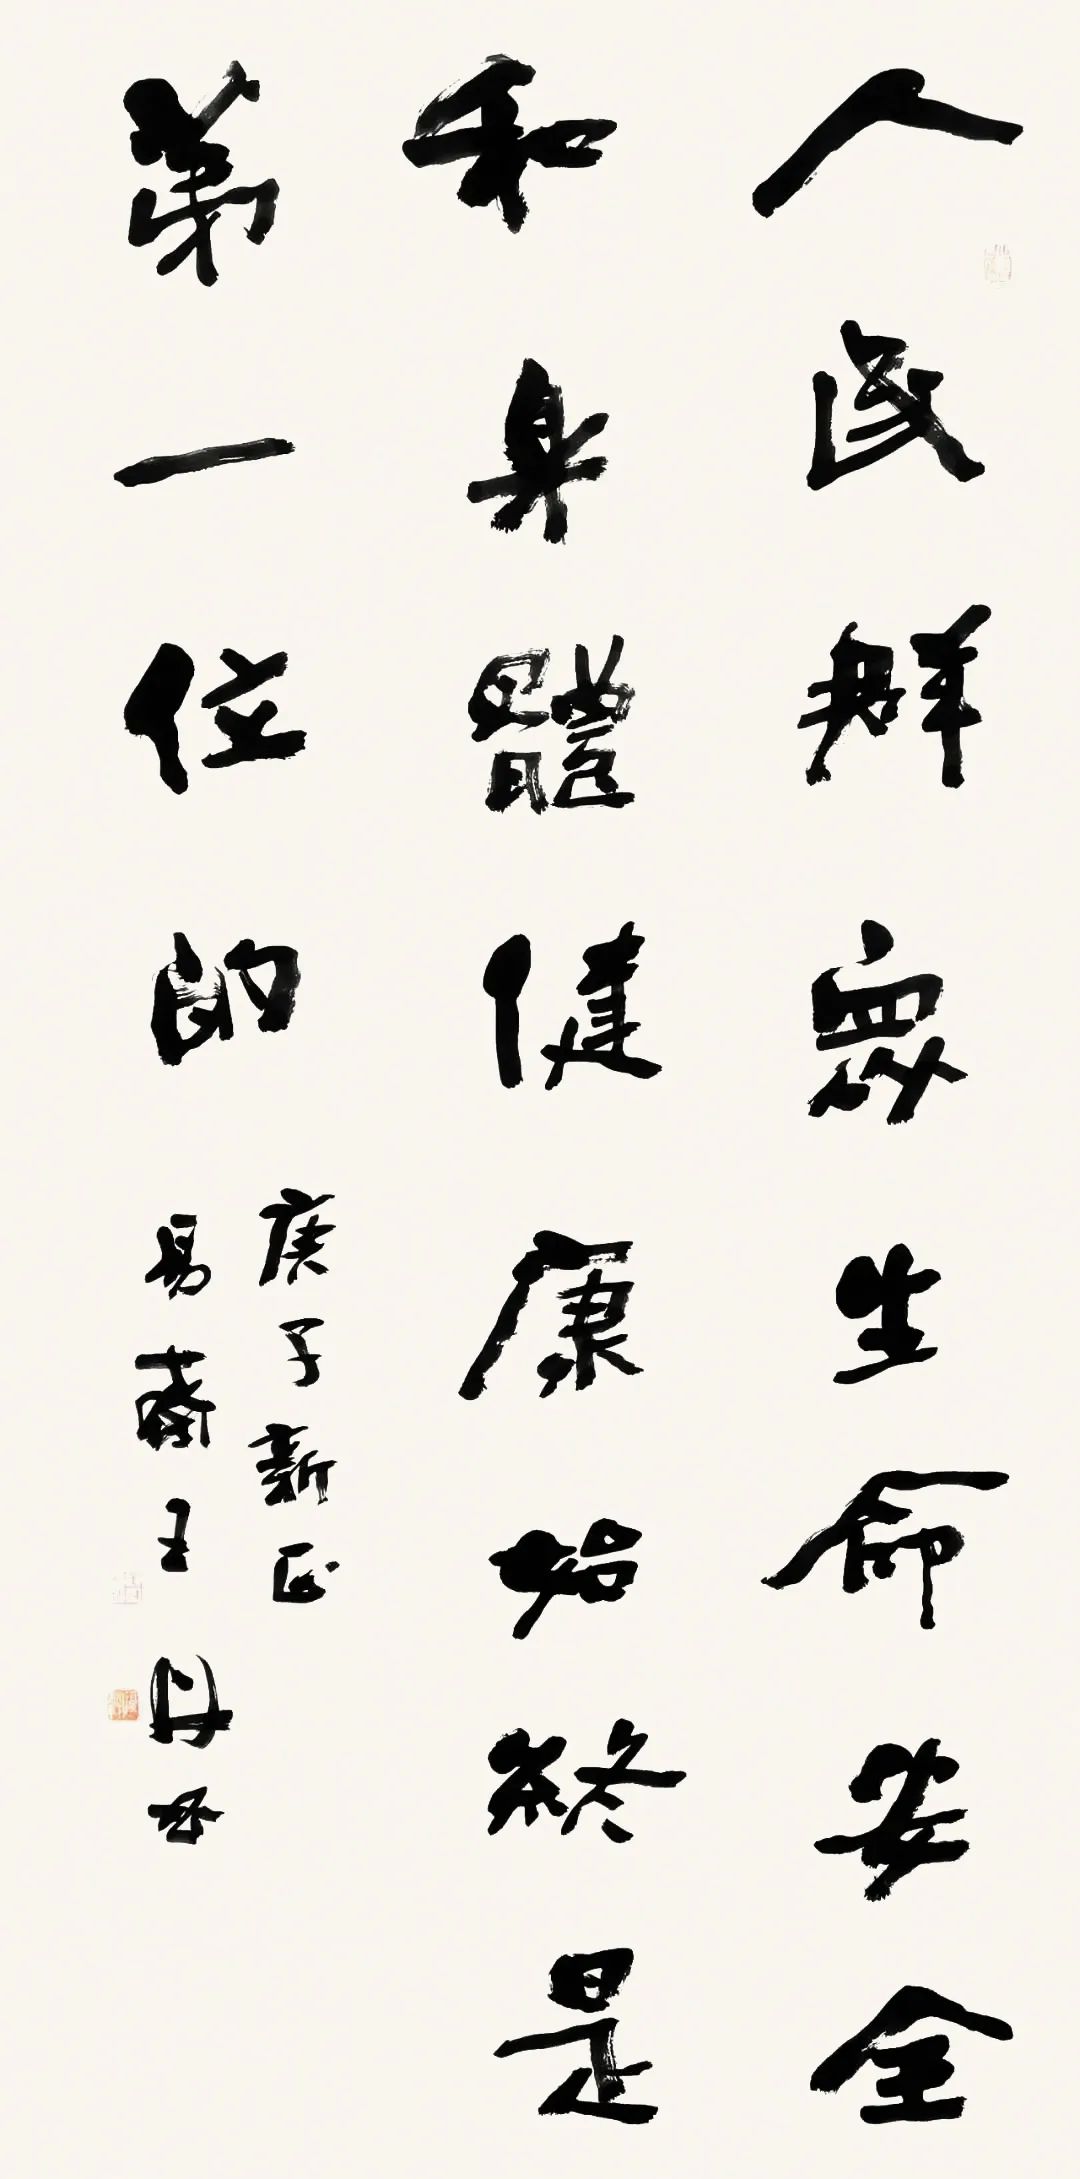 人民群眾生命安全
和身體健康始終是
第一位的
庚子新正
易齋王丹書